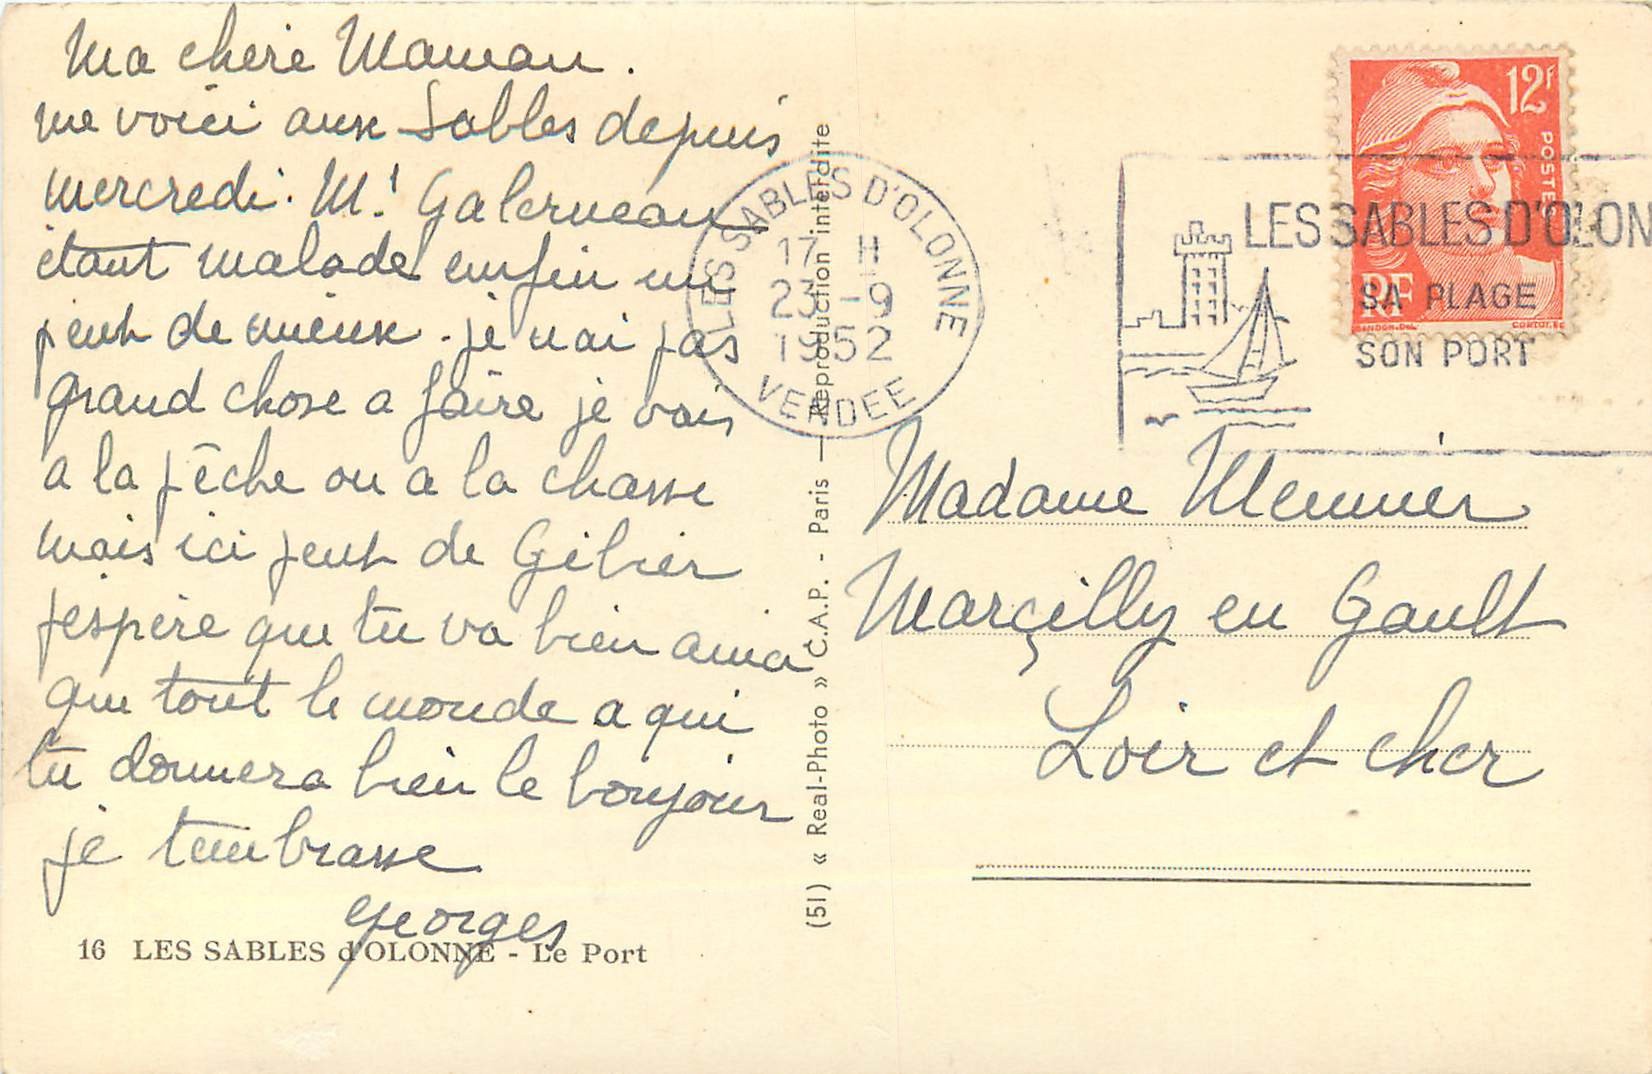 Ma chère Maman.
me voici aux Sables depuis
mercredi. Mr Galerneau
étant malade enfin un
peut de mieux. je nai pas
grand chose a faire je vais
a la pêche ou a la chasse
mais ici peut de Gibier
jespère que tu va bien ainsi
que tout le monde a qui
tu donnera bien le bonjour
je tembrasse
Georges
16 LES SABLES d'OLONNE - Le Port
(51) « Real-Photo » C.A.P. - Paris — Reproduction interdite
LES SABLES D'OLONNE
17 H
23 - 9
1952
VENDEE
12F
POSTES
RF
GANDON.DEL
CORTOT.SC
LES SABLES D'OLON
SA PLAGE
SON PORT
Madame Meunier
Marçilly en Gault
Loir et cher